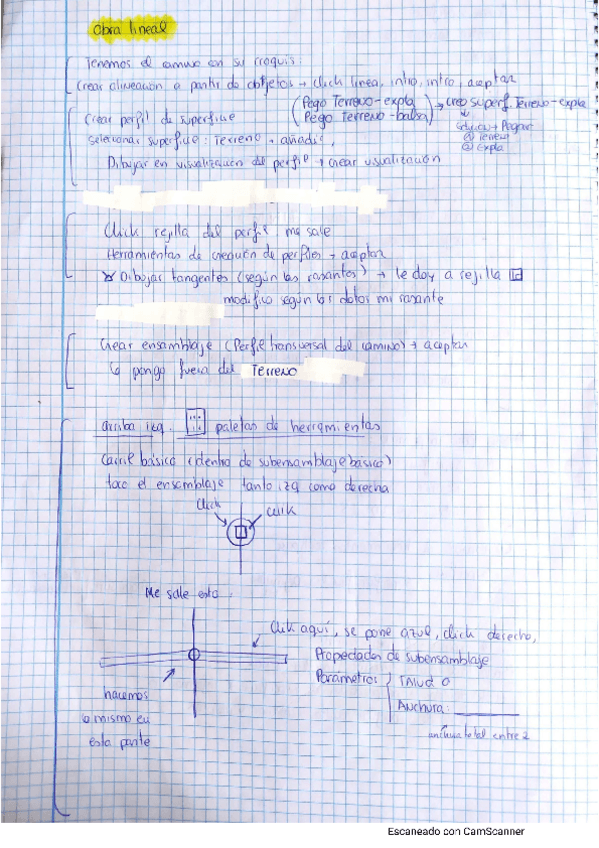 Obra lineal
Tenemos el camino con su croquis:
Crear alineación a partir de objetos → click linea, intro, intro, aceptar
Crear perfil de superficie (Pego Terreno-expla) → creo superf. Terreno-expla
(Pego Terreno-balsa)
Pegar
① Terreno
② Expla
selecionar superficie: Terreno → añadir,
Dibujar en visualización del perfil → crear visualización
Click rejilla del perfil, me sale
Herramientas de creación de perfiles → aceptar
Dibujar tangentes (según las rasantes) → le doy a rejilla
modifico según los datos mi rasante
Crear ensamblaje (Perfil transversal del camino) → aceptar
lo pongo fuera del Terreno
arriba izq. paletas de herramientas
Carril básico (dentro de subensamblaje básico)
toco el ensamblaje tanto izq como derecha
Click
Click
Me sale esto
Click aquí, se pone azul, click derecho,
Propiedades de subensamblaje
Parámetros { Talud 0
Anchura:
anchura total entre 2
hacemos
lo mismo en
esta parte
Escaneado con CamScanner